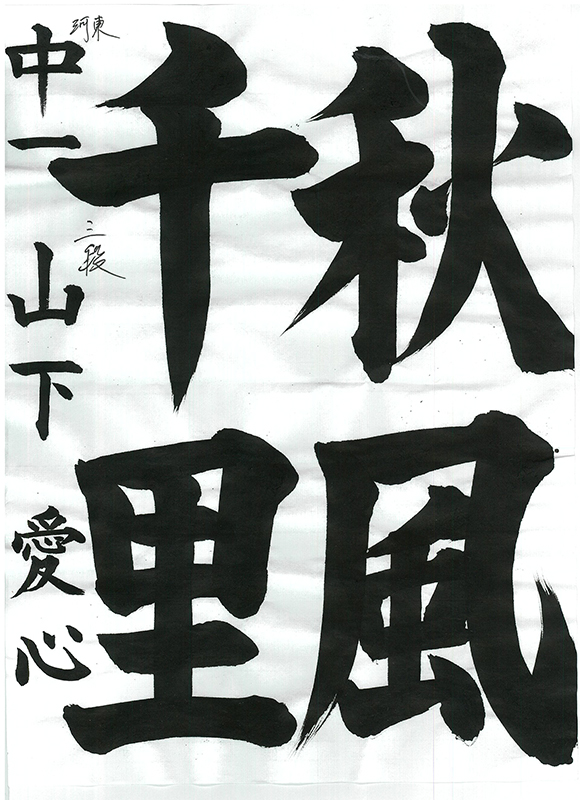 秋風
千里
河東
三段
中一 山下 愛心